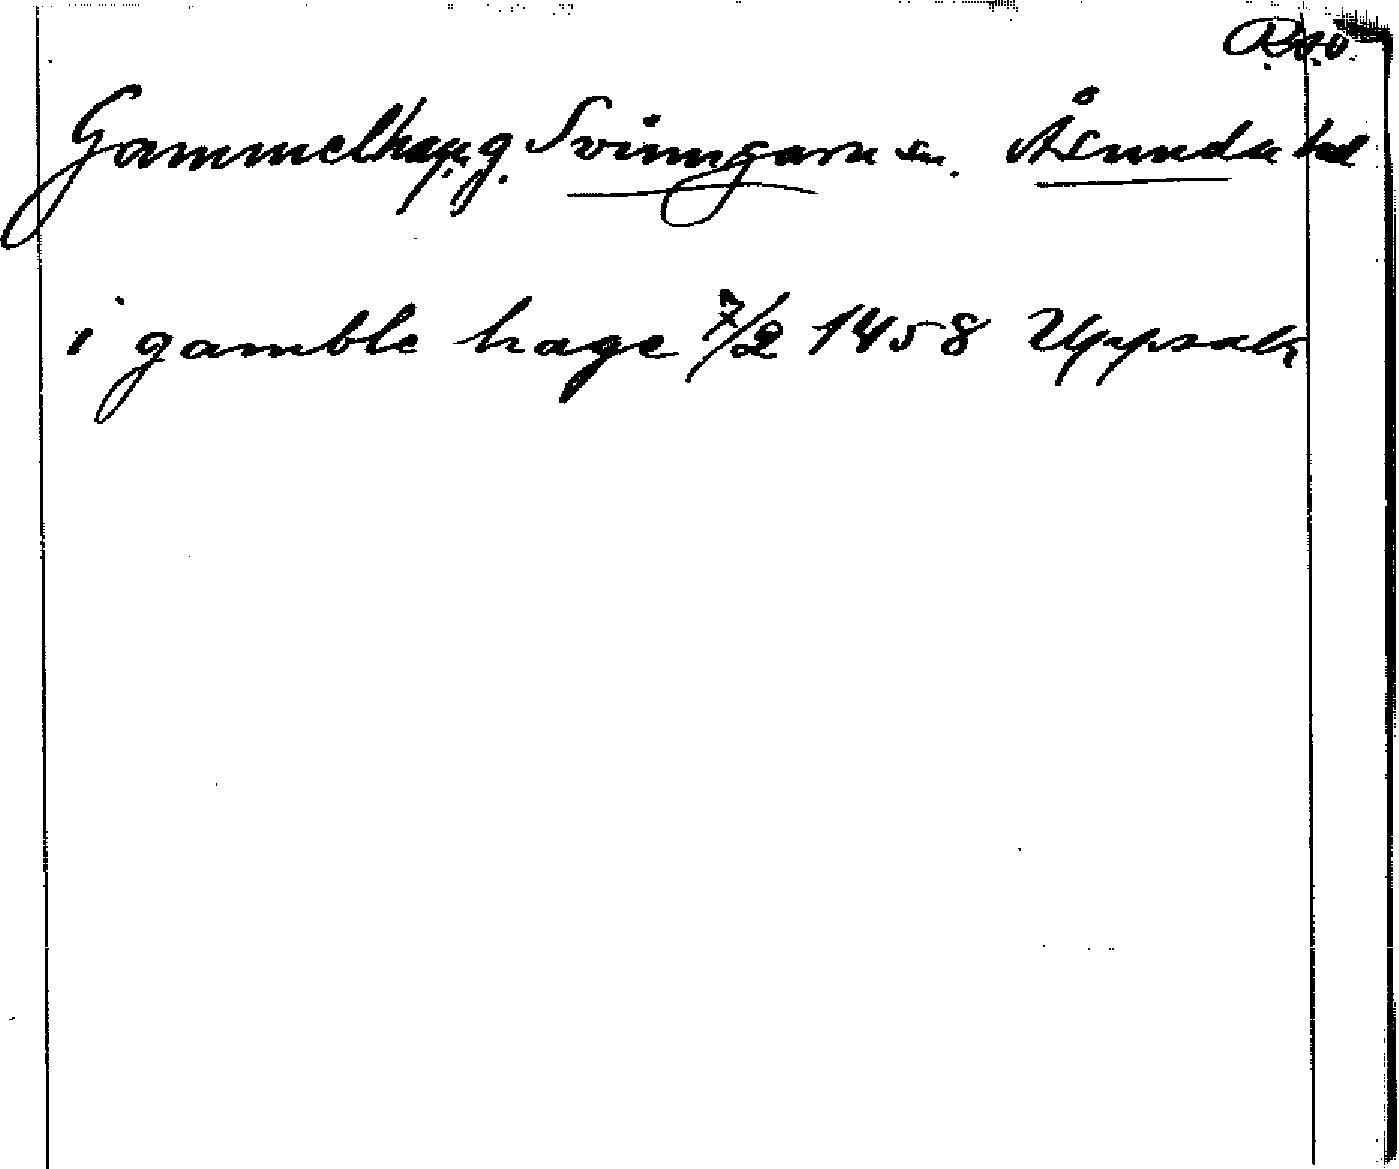 Gammelhag, g. Svinngarn sn. Åsunda hd
i gamble hage 7/2 1458 Uppsala